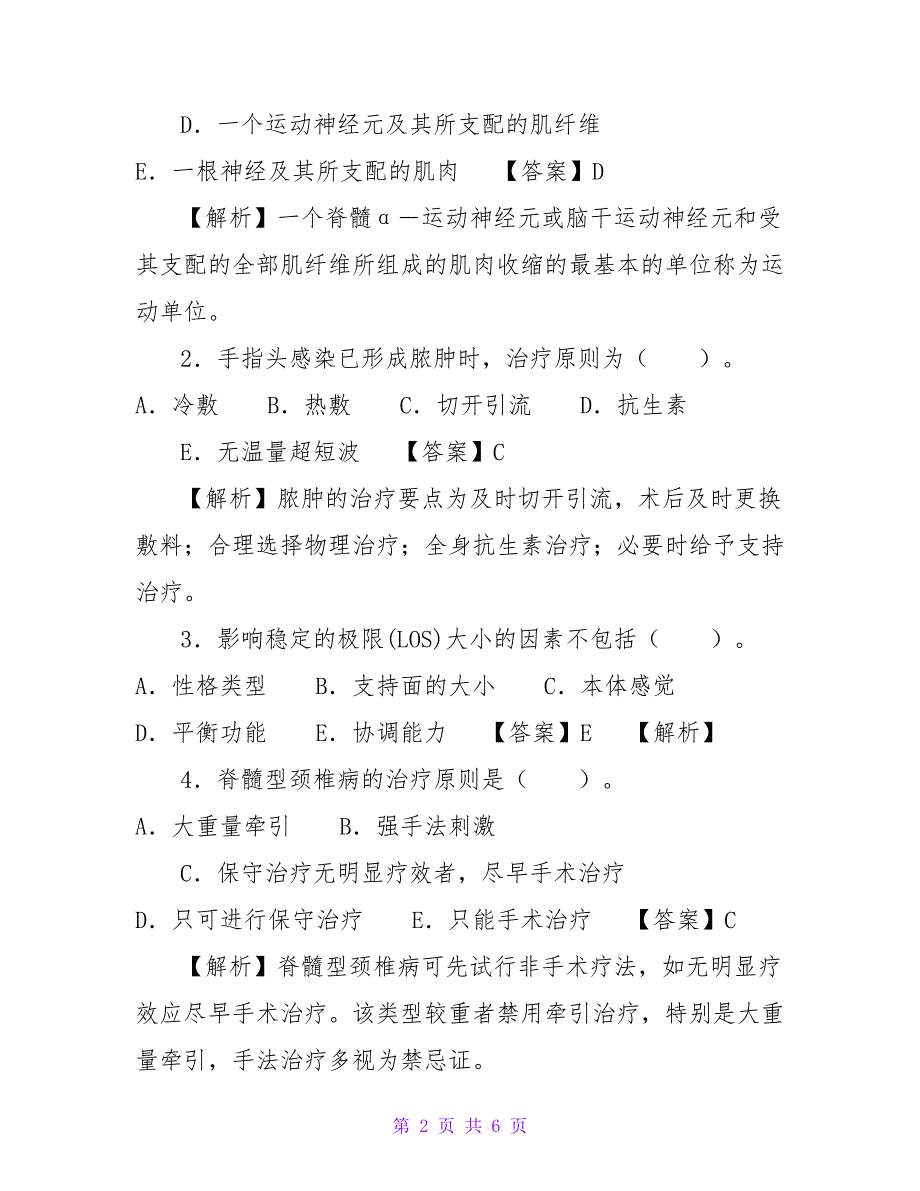 D．一个运动神经元及其所支配的肌纤维
E．一根神经及其所支配的肌肉 【答案】D
【解析】一个脊髓α－运动神经元或脑干运动神经元和受
其支配的全部肌纤维所组成的肌肉收缩的最基本的单位称为运
动单位。
2．手指头感染已形成脓肿时，治疗原则为（ ）。
A．冷敷 B．热敷 C．切开引流 D．抗生素
E．无温量超短波 【答案】C
【解析】脓肿的治疗要点为及时切开引流，术后及时更换
敷料；合理选择物理治疗；全身抗生素治疗；必要时给予支持
治疗。
3．影响稳定的极限(LOS)大小的因素不包括（ ）。
A．性格类型 B．支持面的大小 C．本体感觉
D．平衡功能 E．协调能力 【答案】E 【解析】
4．脊髓型颈椎病的治疗原则是（ ）。
A．大重量牵引 B．强手法刺激
C．保守治疗无明显疗效者，尽早手术治疗
D．只可进行保守治疗 E．只能手术治疗 【答案】C
【解析】脊髓型颈椎病可先试行非手术疗法，如无明显疗
效应尽早手术治疗。该类型较重者禁用牵引治疗，特别是大重
量牵引，手法治疗多视为禁忌证。
第 2 页 共 6 页